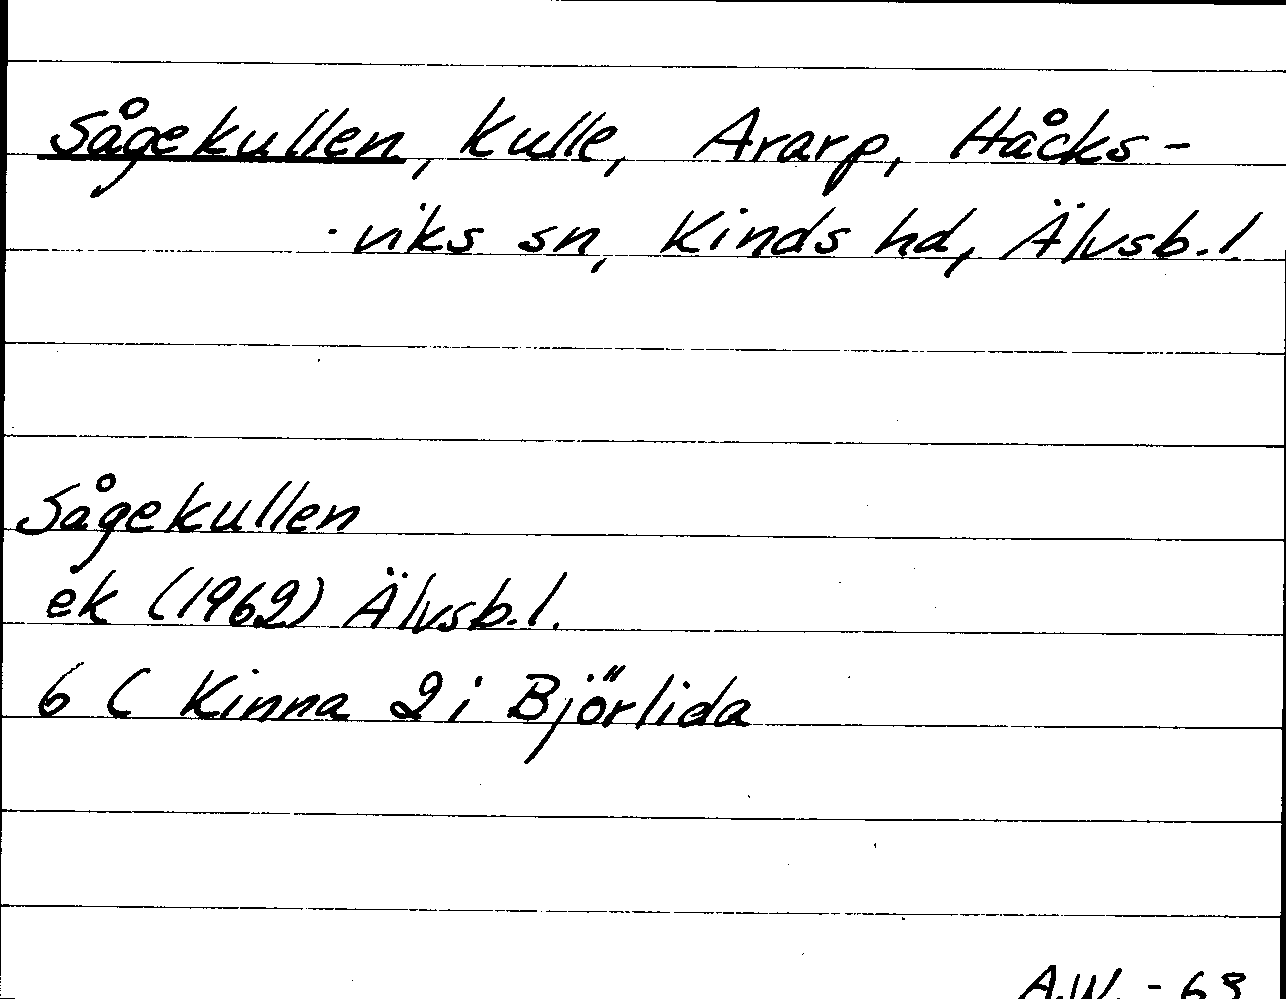 Sågekullen, Kulle, Ararp, Håcks-
viks sn, Kinds hd, Älvsb.l.
Sågekullen
ek (1962) Älvsb.l.
6 C Kinna 2 i Björlida
A.W. - 68